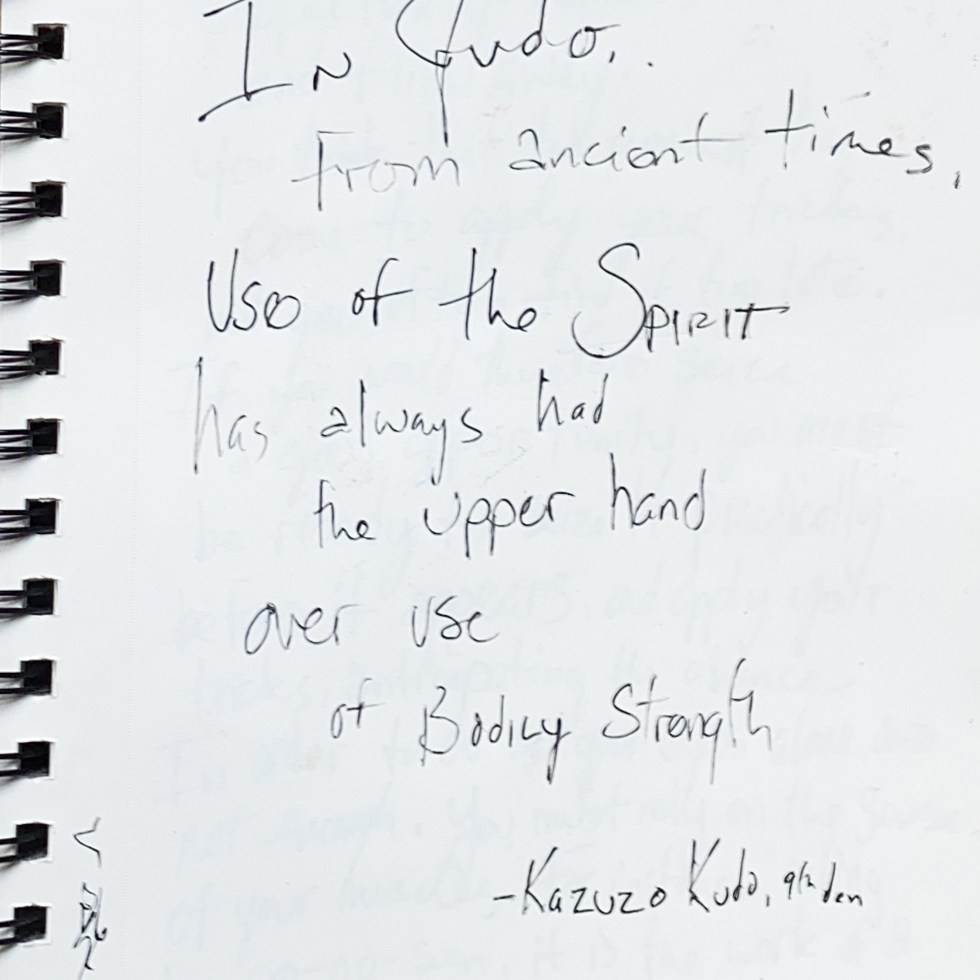 In Judo,.
From ancient times,
Use of the Spirit
has always had
the upper hand
over use
of Bodily Strength
-Kazuzo Kudo, 9th den